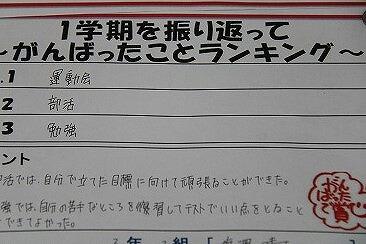 1学期を振り返って
～がんばったことランキング～
.1 運動会
2 部活
3 勉強
ント
部活では、自分で立てた目標に向けて頑張ることができた。
強では、自分の苦手なところを復習してテストでいい点をとること
できてよかった。
がんばったで賞
年 組